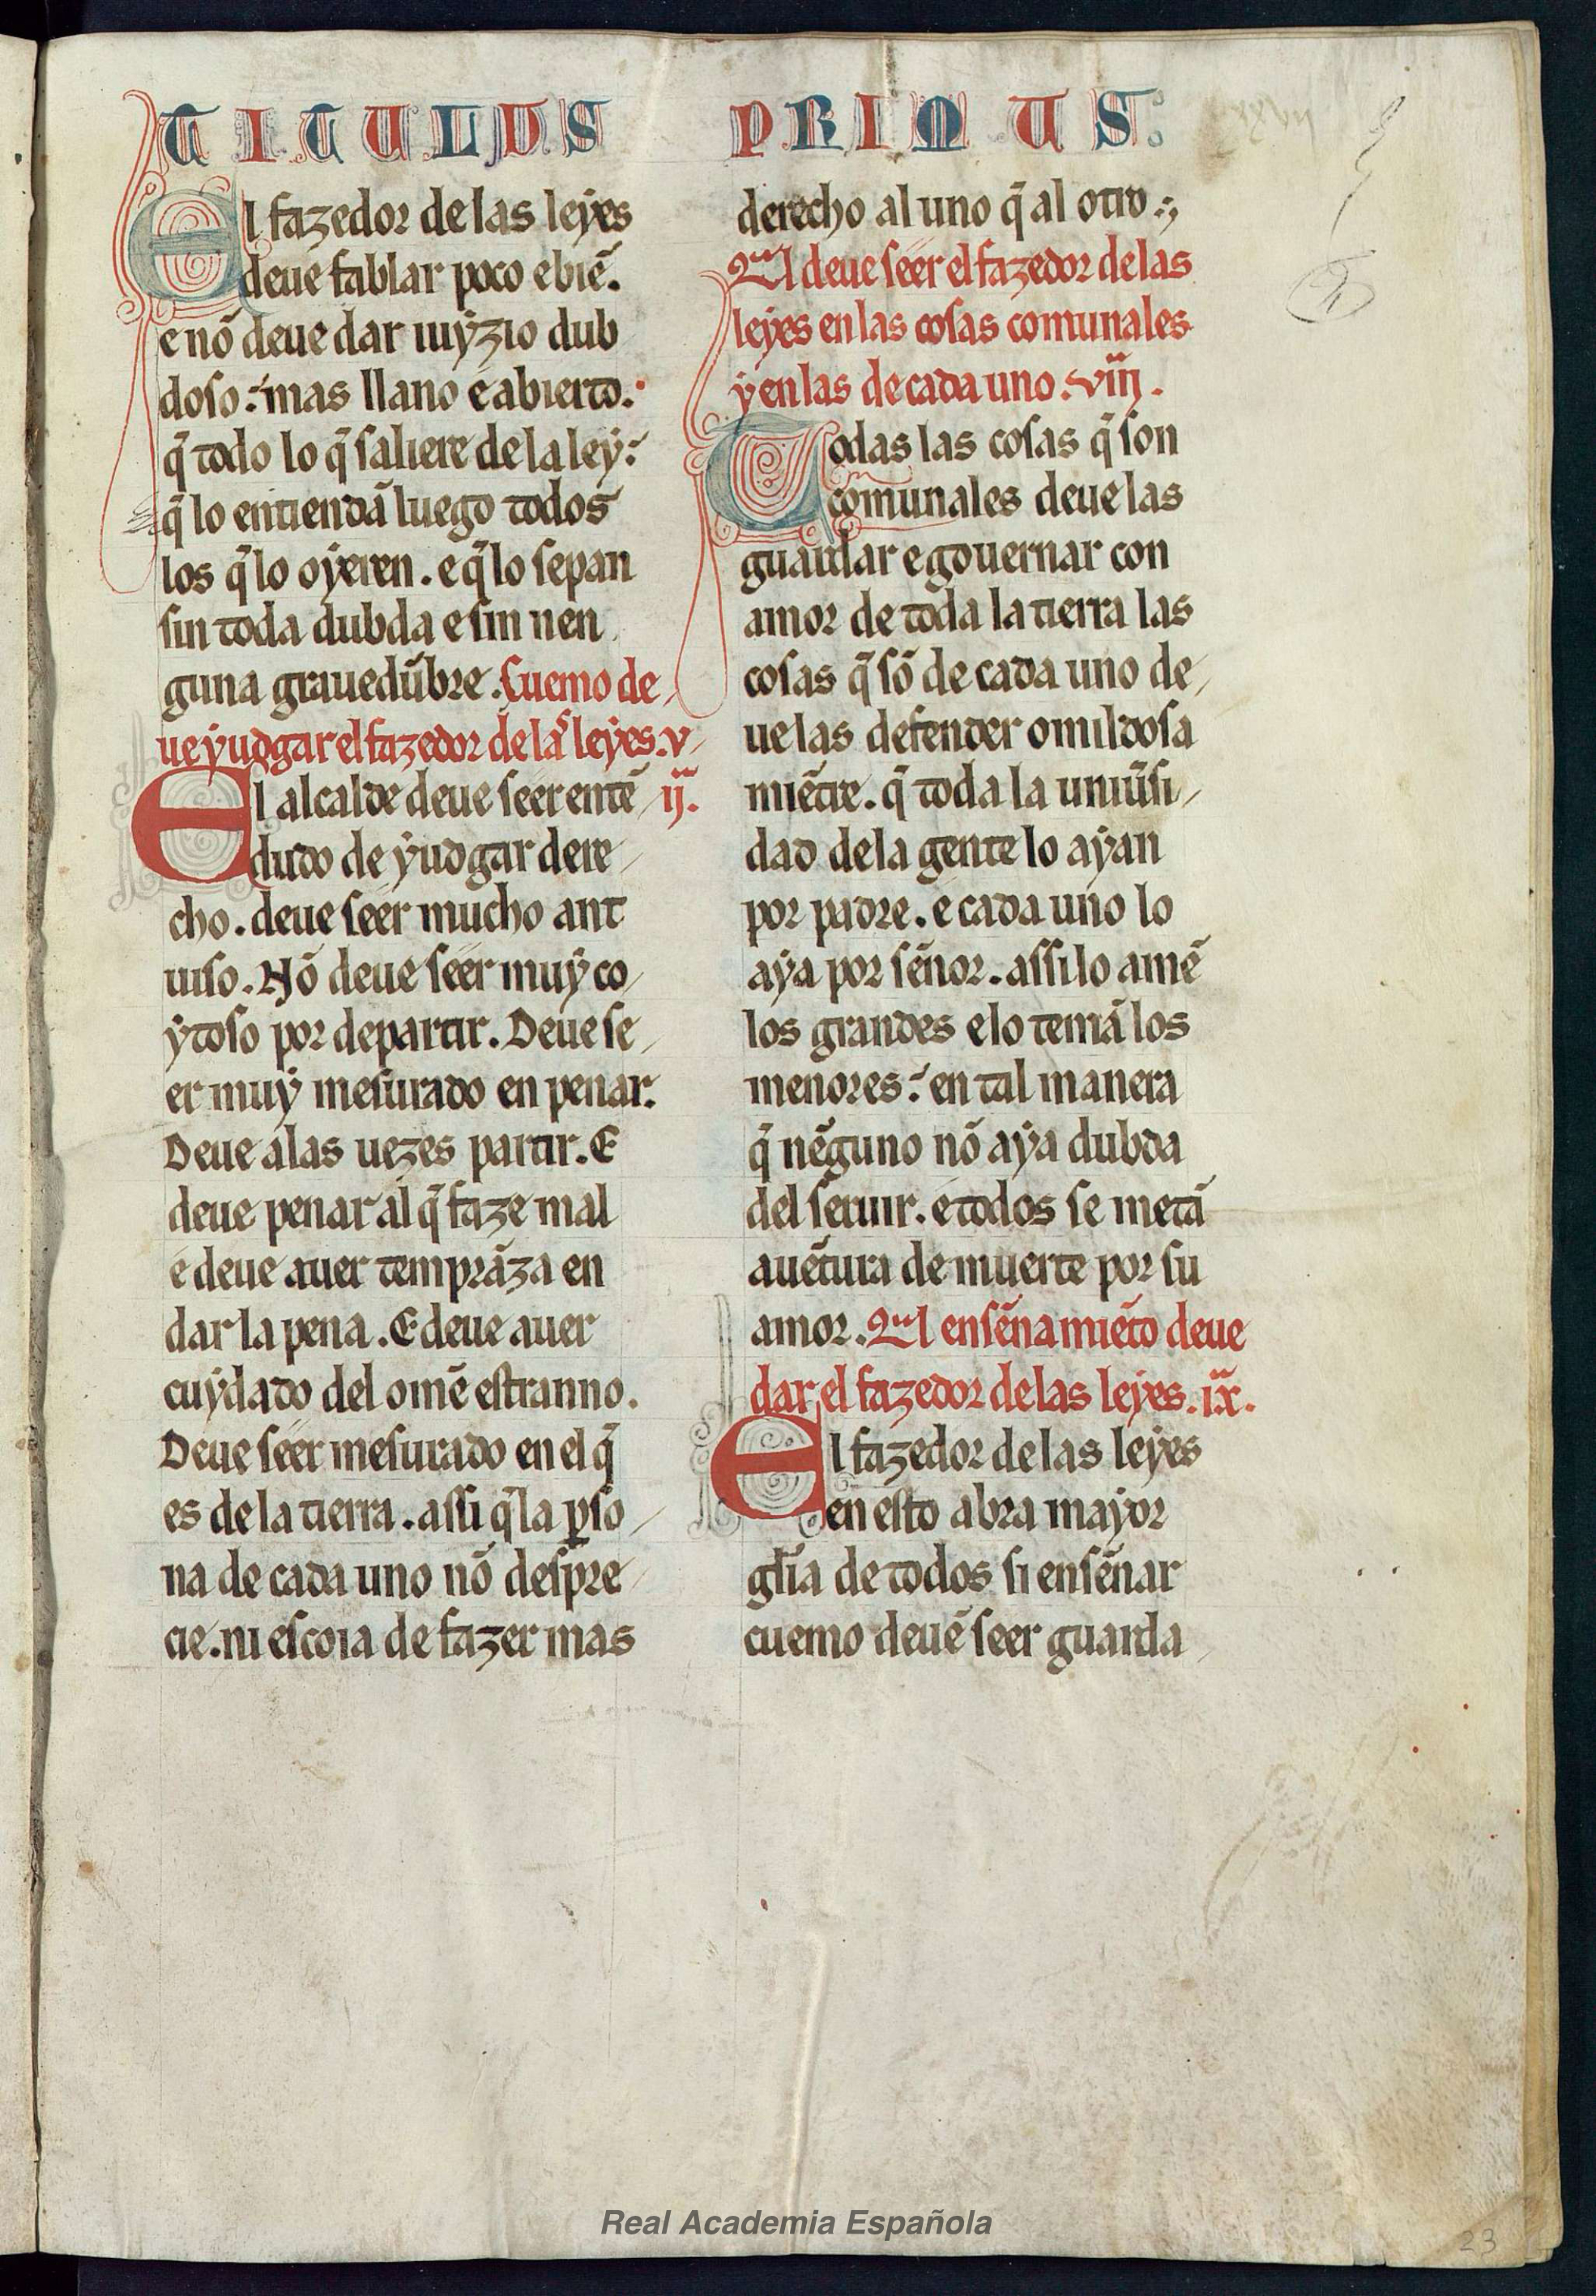 TITULUS PRIMUS:
El fazedor de las leyes
deue fablar poco e biē.
e nō deue dar iuyzio dub
doso: mas llano e abierto.
q̄ todo lo q̄ saliere de la ley:
q̄ lo entiendā luego todos
los q̄ lo oyeren. e q̄ lo sepan
sin toda dubda e sin nen
guna grauedūbre. Cuemo de
ue yudgar el fazedor de las leyes. v
ij.
El alcalde deue seer entē
dudo de yudgar dere
cho. deue seer mucho ant
uiso. Nō deue seer muy co
ytoso por departir. Deue se
er muy mesurado en penar.
Deue a las uezes partir. E
deue penar al q̄ faze mal
e deue auer temprāza en
dar la pena. E deue auer
cuydado del omē estranno.
Deue seer mesurado en el q̄
es de la tierra. assi q̄ la ꝑso
na de cada uno nō despre
cie. ni escoia de fazer mas
derecho al uno q̄ al otro.
Qual deue seer el fazedor de las
leyes en las cosas comunales
y en las de cada uno. viij.
Todas las cosas q̄ son
comunales deue las
guardar e gouernar con
amor de toda la tierra las
cosas q̄ sō de cada uno de
ue las defender omildosa
miētre. q̄ toda la uniūsi
dad de la gente lo ayan
por padre. e cada uno lo
aya por sēnor. assi lo amē
los grandes e lo temā los
menores: en tal manera
q̄ nēguno nō aya dubda
del seruir. e todos se metā
auētura de muerte por su
amor. Qual ensēnamiēto deue
dar el fazedor de las leyes. ix.
El fazedor de las leyes
en esto abra mayor
glīa de todos si ensēnar
cuemo deuē seer guarda
Real Academia Española
23